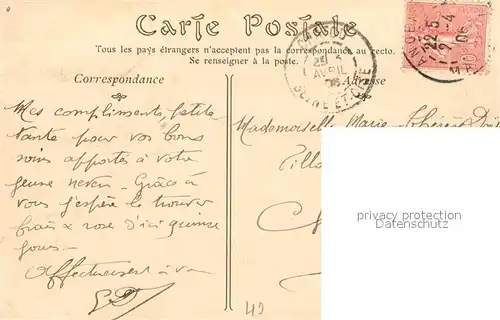 Carte Postale
Tous les pays étrangers n'acceptent pas la correspondance au recto.
Se renseigner à la poste.
Correspondance
Adresse
22 5
2 4
AVRIL
SEINE ET OISE
Mes compliments, petite
tante pour vos bons
soins apportés à votre
jeune neveu – Grâce à
vous j'espère le trouver
frais & rose d'ici quinze
jours –
Affectueusement à vous
Mademoiselle Marie
privacy protection
Datenschutz
42